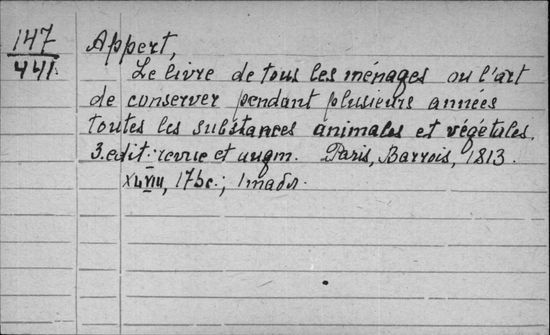 147
441
Appert,
Le livre de tous les ménages ou l'art
de conserver pendant plusieurs années
toutes les substances animales et végétales.
3. edit.: revue et augm. Paris, Barrois, 1813.
XLVIII, 175c.;